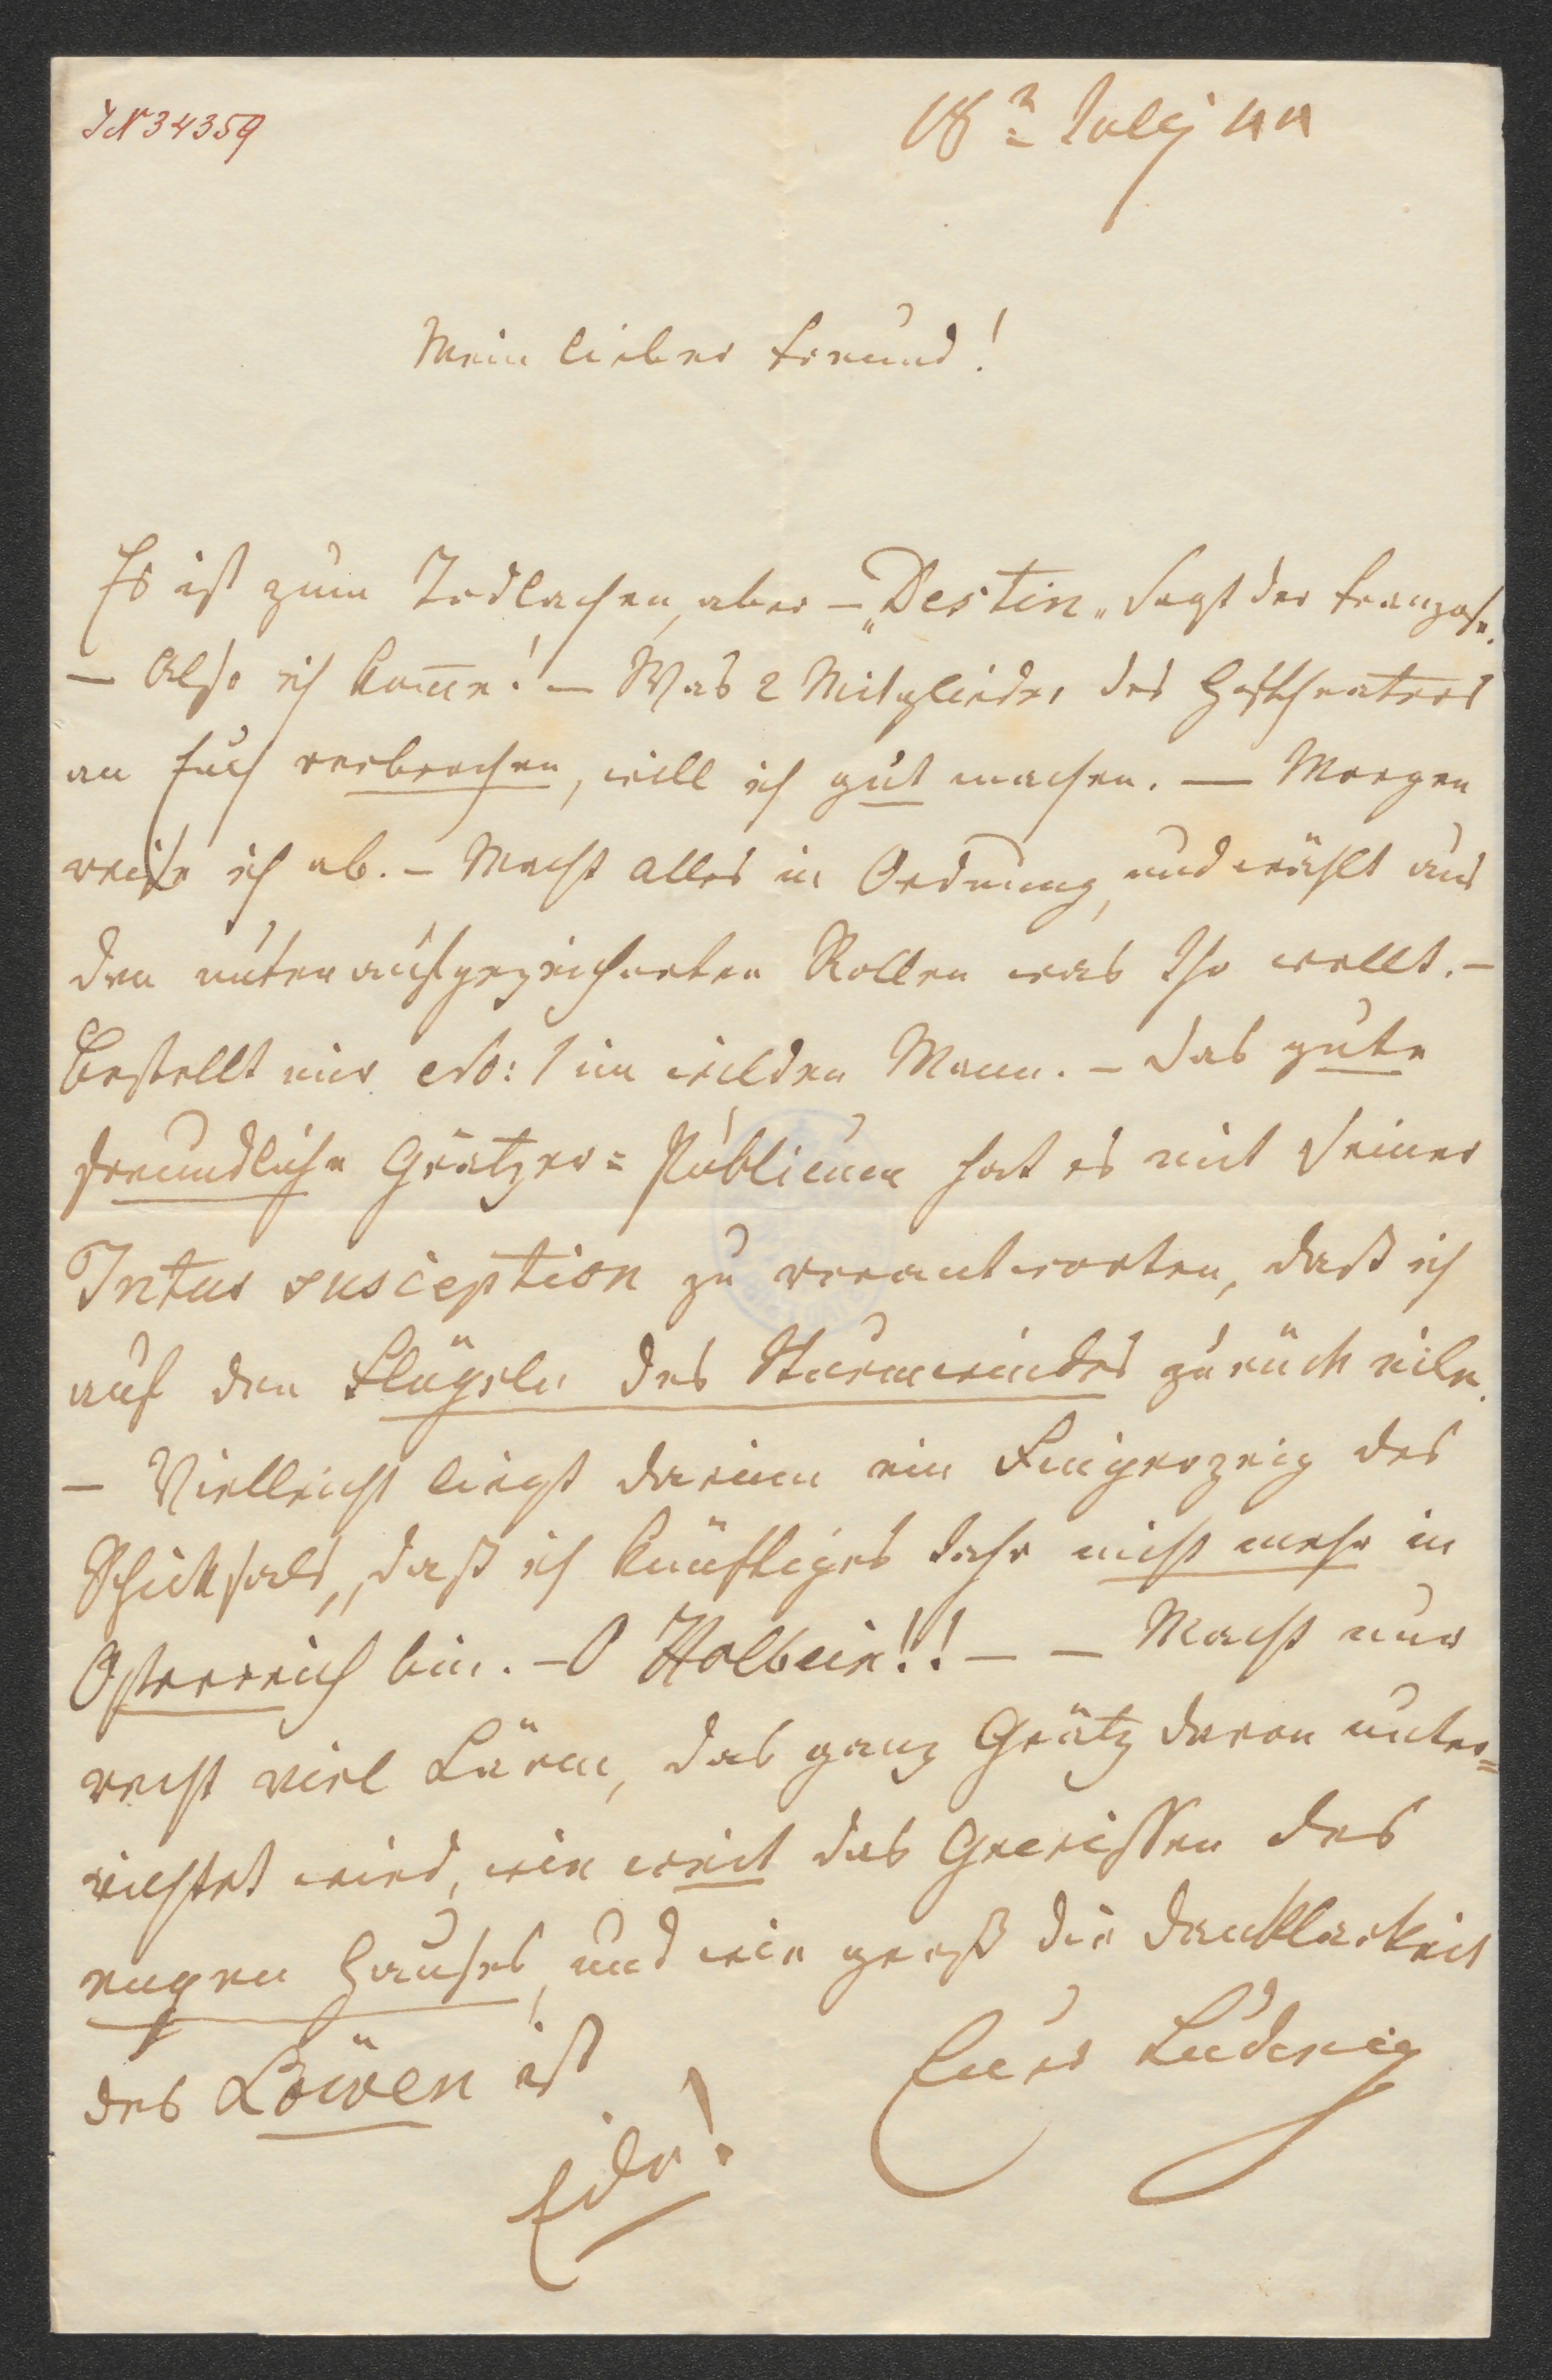 IN 34359
18t July 44
Mein lieber Freund!
Es ist zum Todlachen, aber – „Destin„ sagt der Franzose.
– Also ich kom̄e! – Was 2 Mitglieder des Hoftheaters
an Euch verbrochen, will ich gut machen. – Morgen
reise ich ab. – Macht alles in Ordnung, und wählt aus
den unten aufgezeichneten Rollen was Ihr wollt. –
Bestellt mir No: 1 im wilden Mann. – Das gute
freundliche Grätzer= Publicum hat es mit seiner
Intus susception zu verantworten, daß ich
auf den Flügeln des Sturmwindes zurück eile.
– Vielleicht liegt darinn ein Fingerzeig des
Schicksals, daß ich künftiges Jahr nicht mehr in
Österreich bin. – O Holbein!! – – Macht nur
recht viel Lärm, das ganz Grätz davon unter=
richtet wird, wie weit das Gewissen des
engen Hauses, und wie groß die Dankbarkeit
des Löwen ist
Euer Ludwig